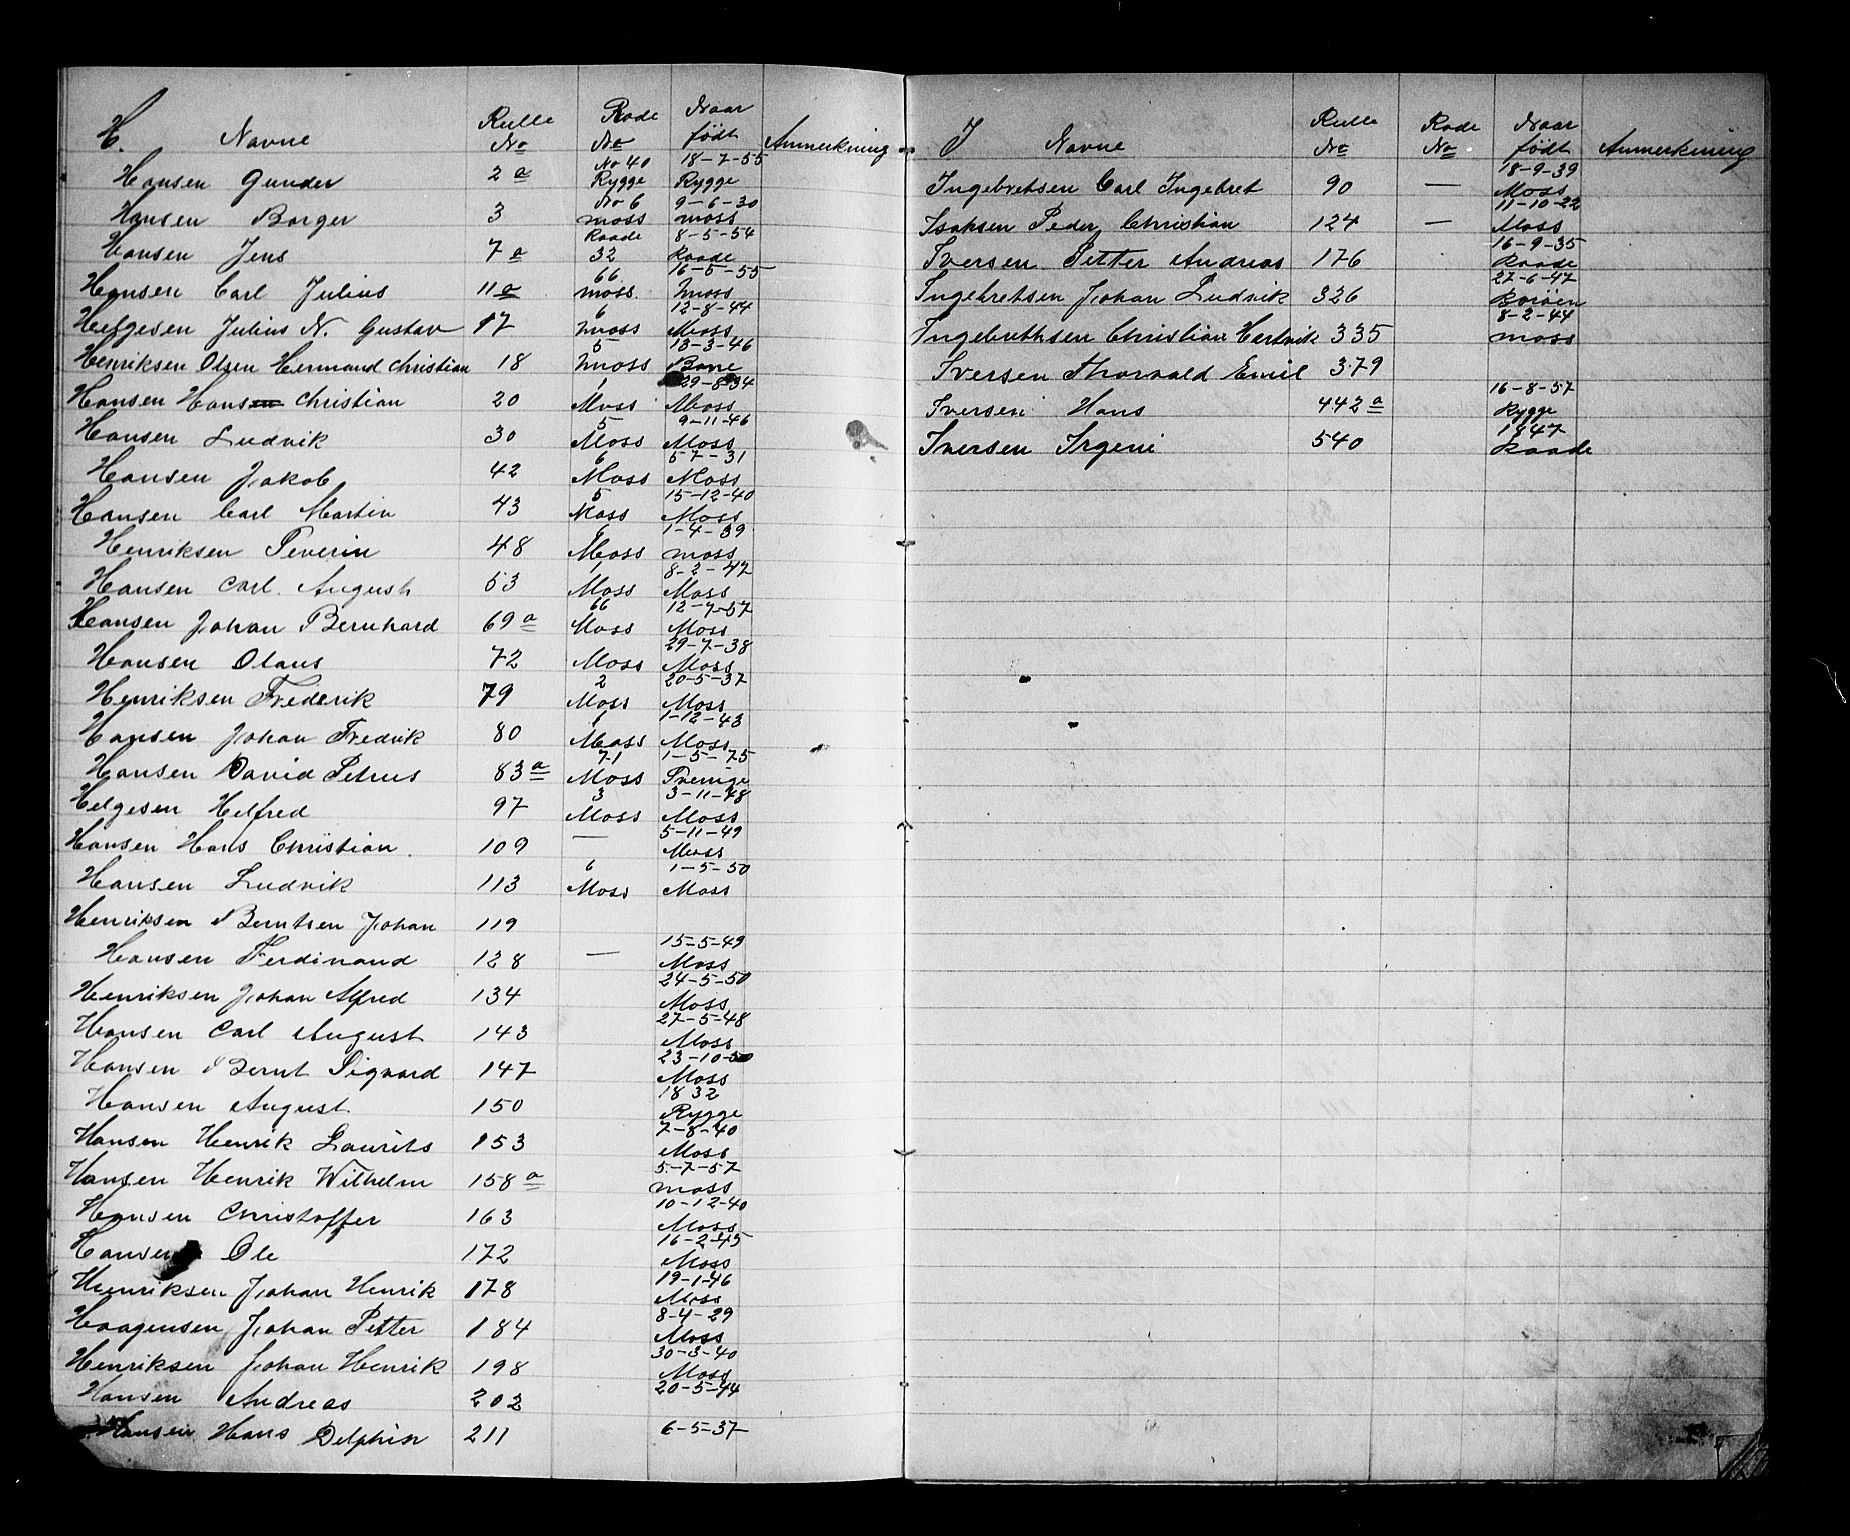 H. Navne Rulle No Rode No Naar født Anmerkning
Hansen Gunder 2 a No 40 Rygge 18-7-55 Rygge
Hansen Borger 3 No 6 moss 9-6-30 moss
Hansen Jens 7 a Raade 32 8-5-54 Raade
Hansen Carl Julius 11 a 66 moss 16-5-55 Moss
Helgesen Julius N. Gustav 17 6 moss 12-8-44 Moss
Henriksen Olsen Hermand Christian 18 5 moss 13-3-46
Hansen Hans Christian 20 1 Moss 29-8-34 Moss
Hansen Ludvik 30 5 Moss 9-11-46 Moss
Hansen Jakob 42 6 Moss 5-7-31 Moss
Hansen Carl Martin 43 5 Moss 15-12-40 Moss
Henriksen Severin 48 6 Moss 1-4-39 moss
Hansen Carl August 53 1 Moss 8-2-42 Moss
Hansen Johan Bernhard 69 a 66 Moss 12-7-57 Moss
Hansen Olaus 72 Moss 29-7-38 Moss
Henriksen Frederik 79 2 Moss 20-5-37 Moss
Hansen Johan Fredrik 80 1 Moss 1-12-43 Moss
Hansen David Petrus 83 a 71 Moss 1-5-75 Sverige
Helgesen Helfred 97 3 Moss 3-11-48 Moss
Hansen Hans Christian 109 — 5-11-49 Moss
Hansen Ludvik 113 6 Moss 1-5-50 Moss
Henriksen Berntsen Johan 119
Hansen Ferdinand 128 — 15-5-49 Moss
Henriksen Johan Alfred 134 24-5-50 Moss
Hansen Carl August 143 27-5-48 Moss
Hansen Bernt Sigvard 147 23-10-50 Moss
Hansen August 150 1832 Rygge
Hansen Henrik Laurits 153 7-8-40 Moss
Hansen Henrik Wilhelm 158 a 5-7-57 moss
Hansen Christoffer 163 10-12-40 Moss
Hansen Ole 172 16-2-45 Moss
Henriksen Johan Henrik 178 19-1-46 Moss
Haagensen Johan Petter 184 8-4-29 Moss
Henriksen Johan Henrik 198 30-3-40 Moss
Hansen Andreas 202 20-5-44
Hansen Hans Delphin 211 6-5-37
I Navne Rulle No Rode No Naar født Anmerkning
Ingebretsen Carl Ingebret 90 — 18-9-39 Moss
Isaksen Peder Christian 124 — 11-10-22 Moss
Iversen Petter Andreas 176 16-9-35 Raade
Ingebretsen Johan Ludvik 326 27-6-47
Ingebrethsen Christian Hartvik 335 8-2-44 moss
Iversen Thorvald Emil 379
Iversen Hans 442 a 16-8-57 Rygge
Iversen Irgeni 540 1847 Raade